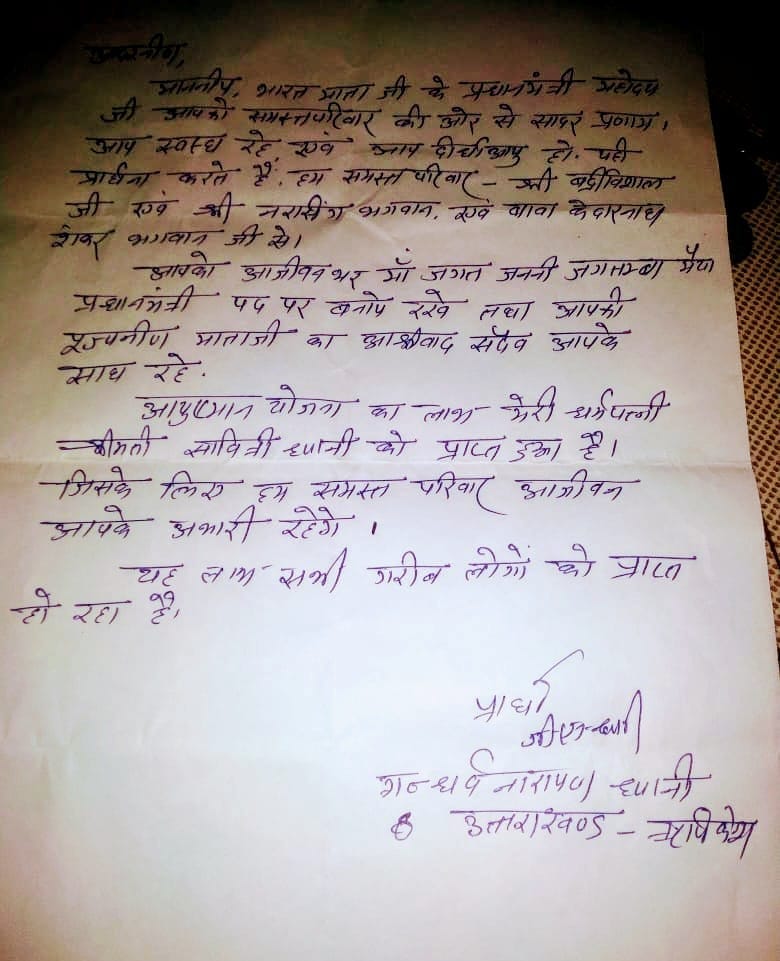 आदरनीय,
माननीय, भारत माता जी के प्रधानमंत्री महोदय
जी आपको समस्त परिवार की ओर से सादर प्रणाम।
आप स्वस्थ रहे एवं आप दीर्घाआयु हो. यही
प्रार्थना करते हैं. हम समस्त परिवार - श्री बद्रीविशाल
जी एवं श्री नरासींग भगवान. एवं बाबा केदारनाथ
शंकर भगवान जी से।
आपको आजीवन भर माँ जगत जननी जगतम्बा मैया
प्रधानमंत्री पद पर बनाये रखे तथा आपकी
पूज्यनीय माताजी का आर्शीवाद सदैव आपके
साथ रहे.
आयुष्मान योजना का लाभ मेरी धर्मपत्नी
श्रीमती सावित्री ध्यानी को प्राप्त हुआ है।
जिसके लिए हम समस्त परिवार आजीवन
आपके अभारी रहेगे ।
यह लाभ सभी गरीब लोगों को प्राप्त
हो रहा है।
प्रार्थी
जी एन ध्यानी
गन्धर्व नारायण ध्यानी
उत्तराखण्ड - ऋषिकेश